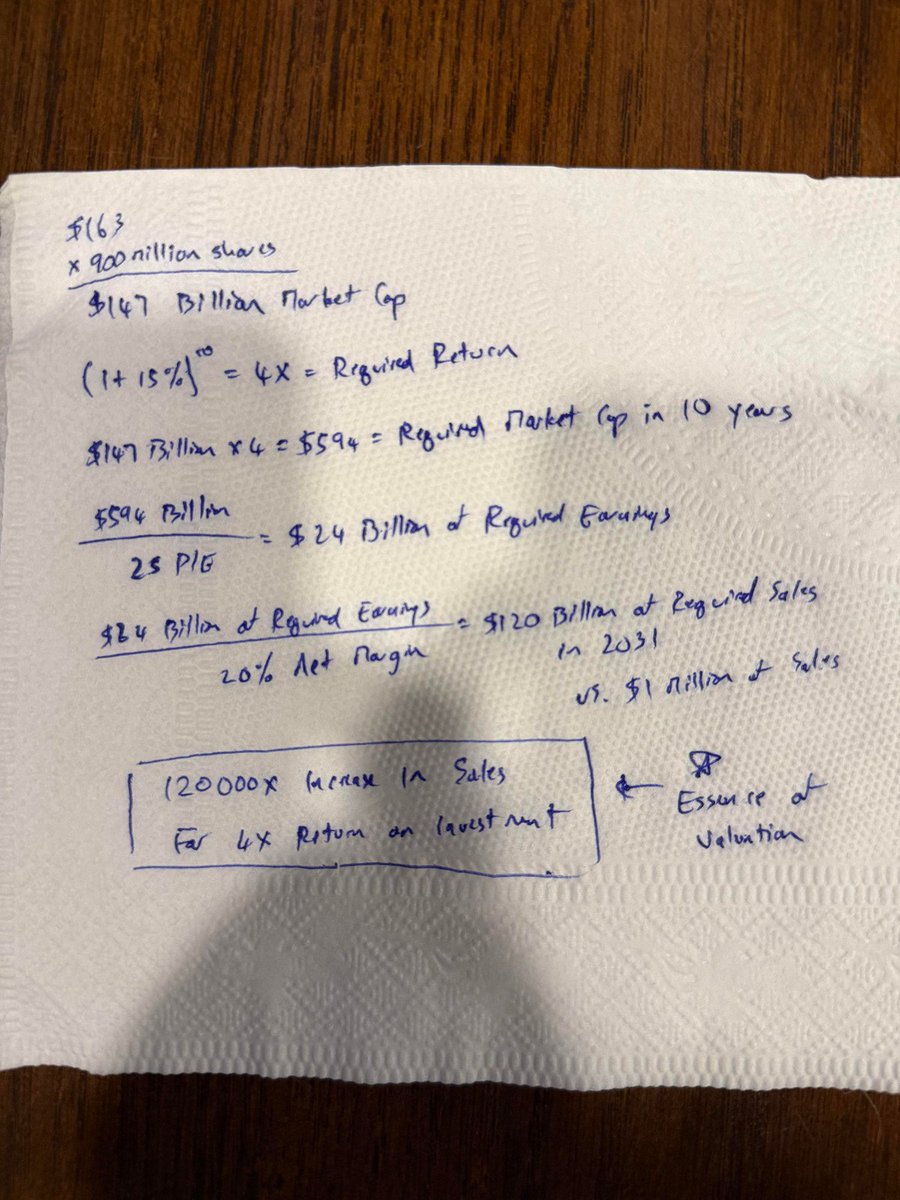 $163
x 900 million shares
$147 Billion Market Cap
(1+15%)^10 = 4X = Required Return
$147 Billion x 4 = $594 = Required Market Cap in 10 years
$594 Billion
25 P/E
= $24 Billion of Required Earnings
$24 Billion of Required Earnings
20% Net Margin
= $120 Billion of Required Sales
in 2031
vs. $1 Million of Sales
120000x Increase in Sales
For 4X Return on Investment
← Essence of
Valuation